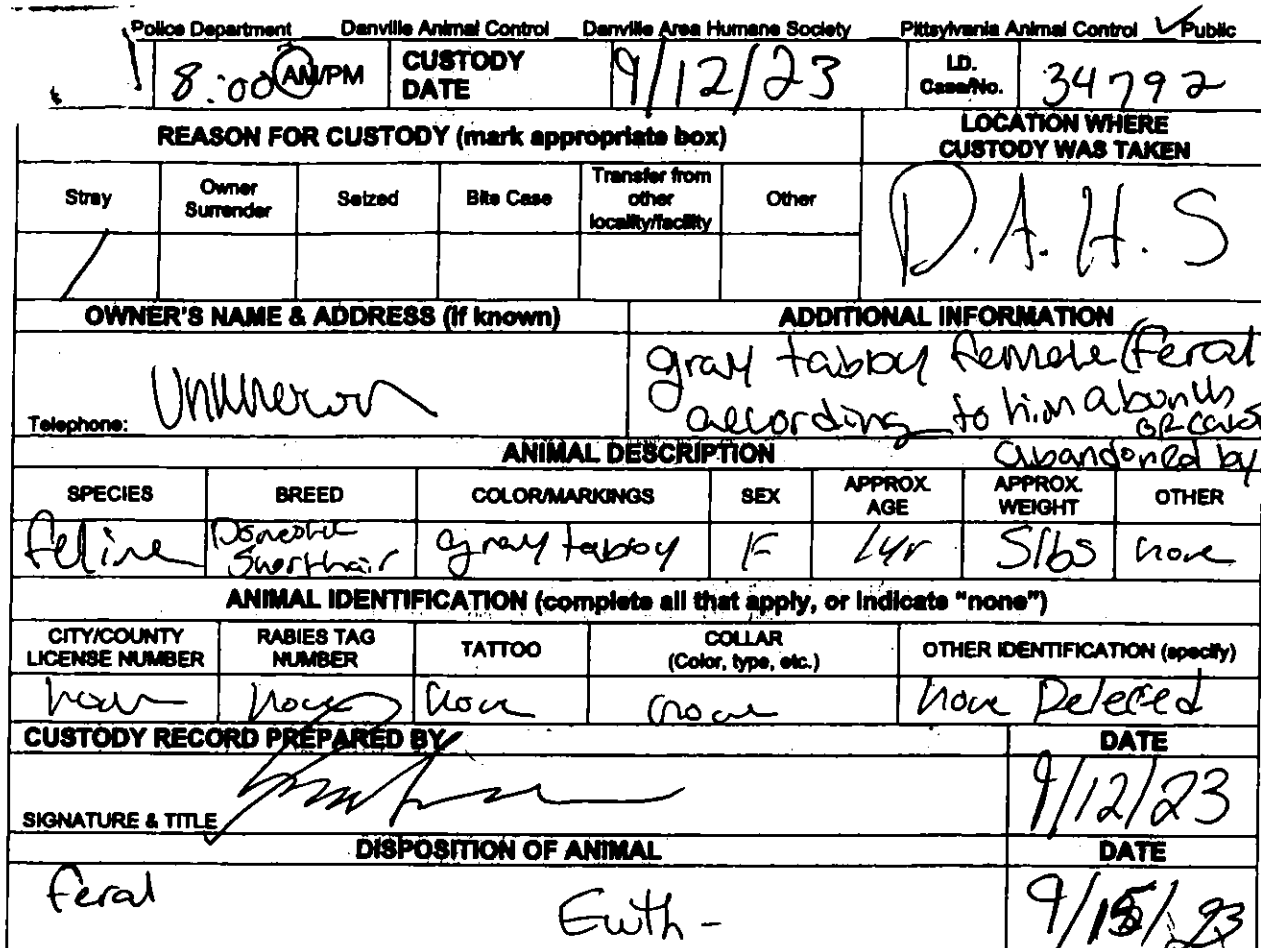 Police Department Danville Animal Control Danville Area Humane Society Pittsylvania Animal Control ✓ Public
8:00 AM/PM CUSTODY DATE 9/12/23 I.D. Case/No. 34792
REASON FOR CUSTODY (mark appropriate box) LOCATION WHERE CUSTODY WAS TAKEN
Stray Owner Surrender Seized Bite Case Transfer from other locality/facility Other
/ D.A.H.S
OWNER'S NAME & ADDRESS (if known) ADDITIONAL INFORMATION
gray tabby female (feral
Unknown according to him
Telephone:
ANIMAL DESCRIPTION abandoned by
SPECIES BREED COLOR/MARKINGS SEX APPROX. AGE APPROX. WEIGHT OTHER
feline Domestic Shorthair gray tabby F 1yr 5lbs none
ANIMAL IDENTIFICATION (complete all that apply, or indicate "none")
CITY/COUNTY LICENSE NUMBER RABIES TAG NUMBER TATTOO COLLAR (Color, type, etc.) OTHER IDENTIFICATION (specify)
none none none none none Detected
CUSTODY RECORD PREPARED BY DATE
9/12/23
SIGNATURE & TITLE
DISPOSITION OF ANIMAL DATE
feral Euth - 9/15/23